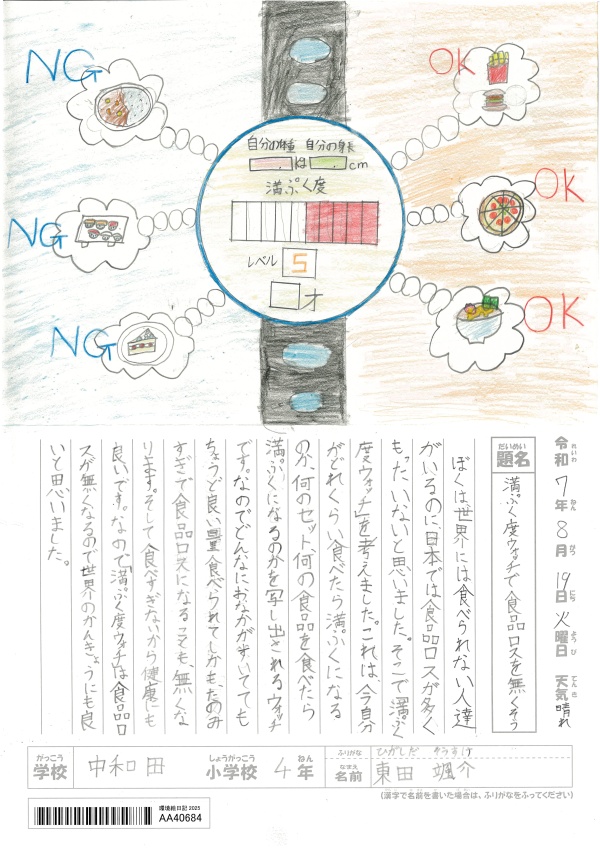 NG
OK
自分の種 自分の身長
は cm
満ぷく度
NG
OK
レベル 5
才
NG
OK
令和7年8月19日火曜日 天気 晴れ
れいわ ねん がつ にち ようび てんき
だいめい
題名 満ぷく度ウォッチで食品ロスを無くそう
ぼくは世界には食べられない人達
がいるのに、日本では食品ロスが多く
もったいないと思いました。そこで「満ぷく
度ウォッチ」を考えました。これは、今自分
がどれくらい食べたら満ぷくになる
のか、何のセット、何の食品を食べたら
満ぷくになるのかを写し出されるウォッチ
です。なのでどんなにおなかがすいてても
ちょうど良い量食べられてしかもたのみ
すぎで食品ロスになることも、無くな
ります。そして食べすぎないから健康にも
良いです。なので「満ぷく度ウォッチ」は食品ロ
スが無くなるので世界のかんきょうにも良
いと思いました。
がっこう しょうがっこう ねん ふりがな ひがしだ そうすけ
学校 中和田 小学校 4年 なまえ 名前 東田 颯介
(漢字で名前を書いた場合は、ふりがなをふってください)
環境絵日記 2025
AA40684